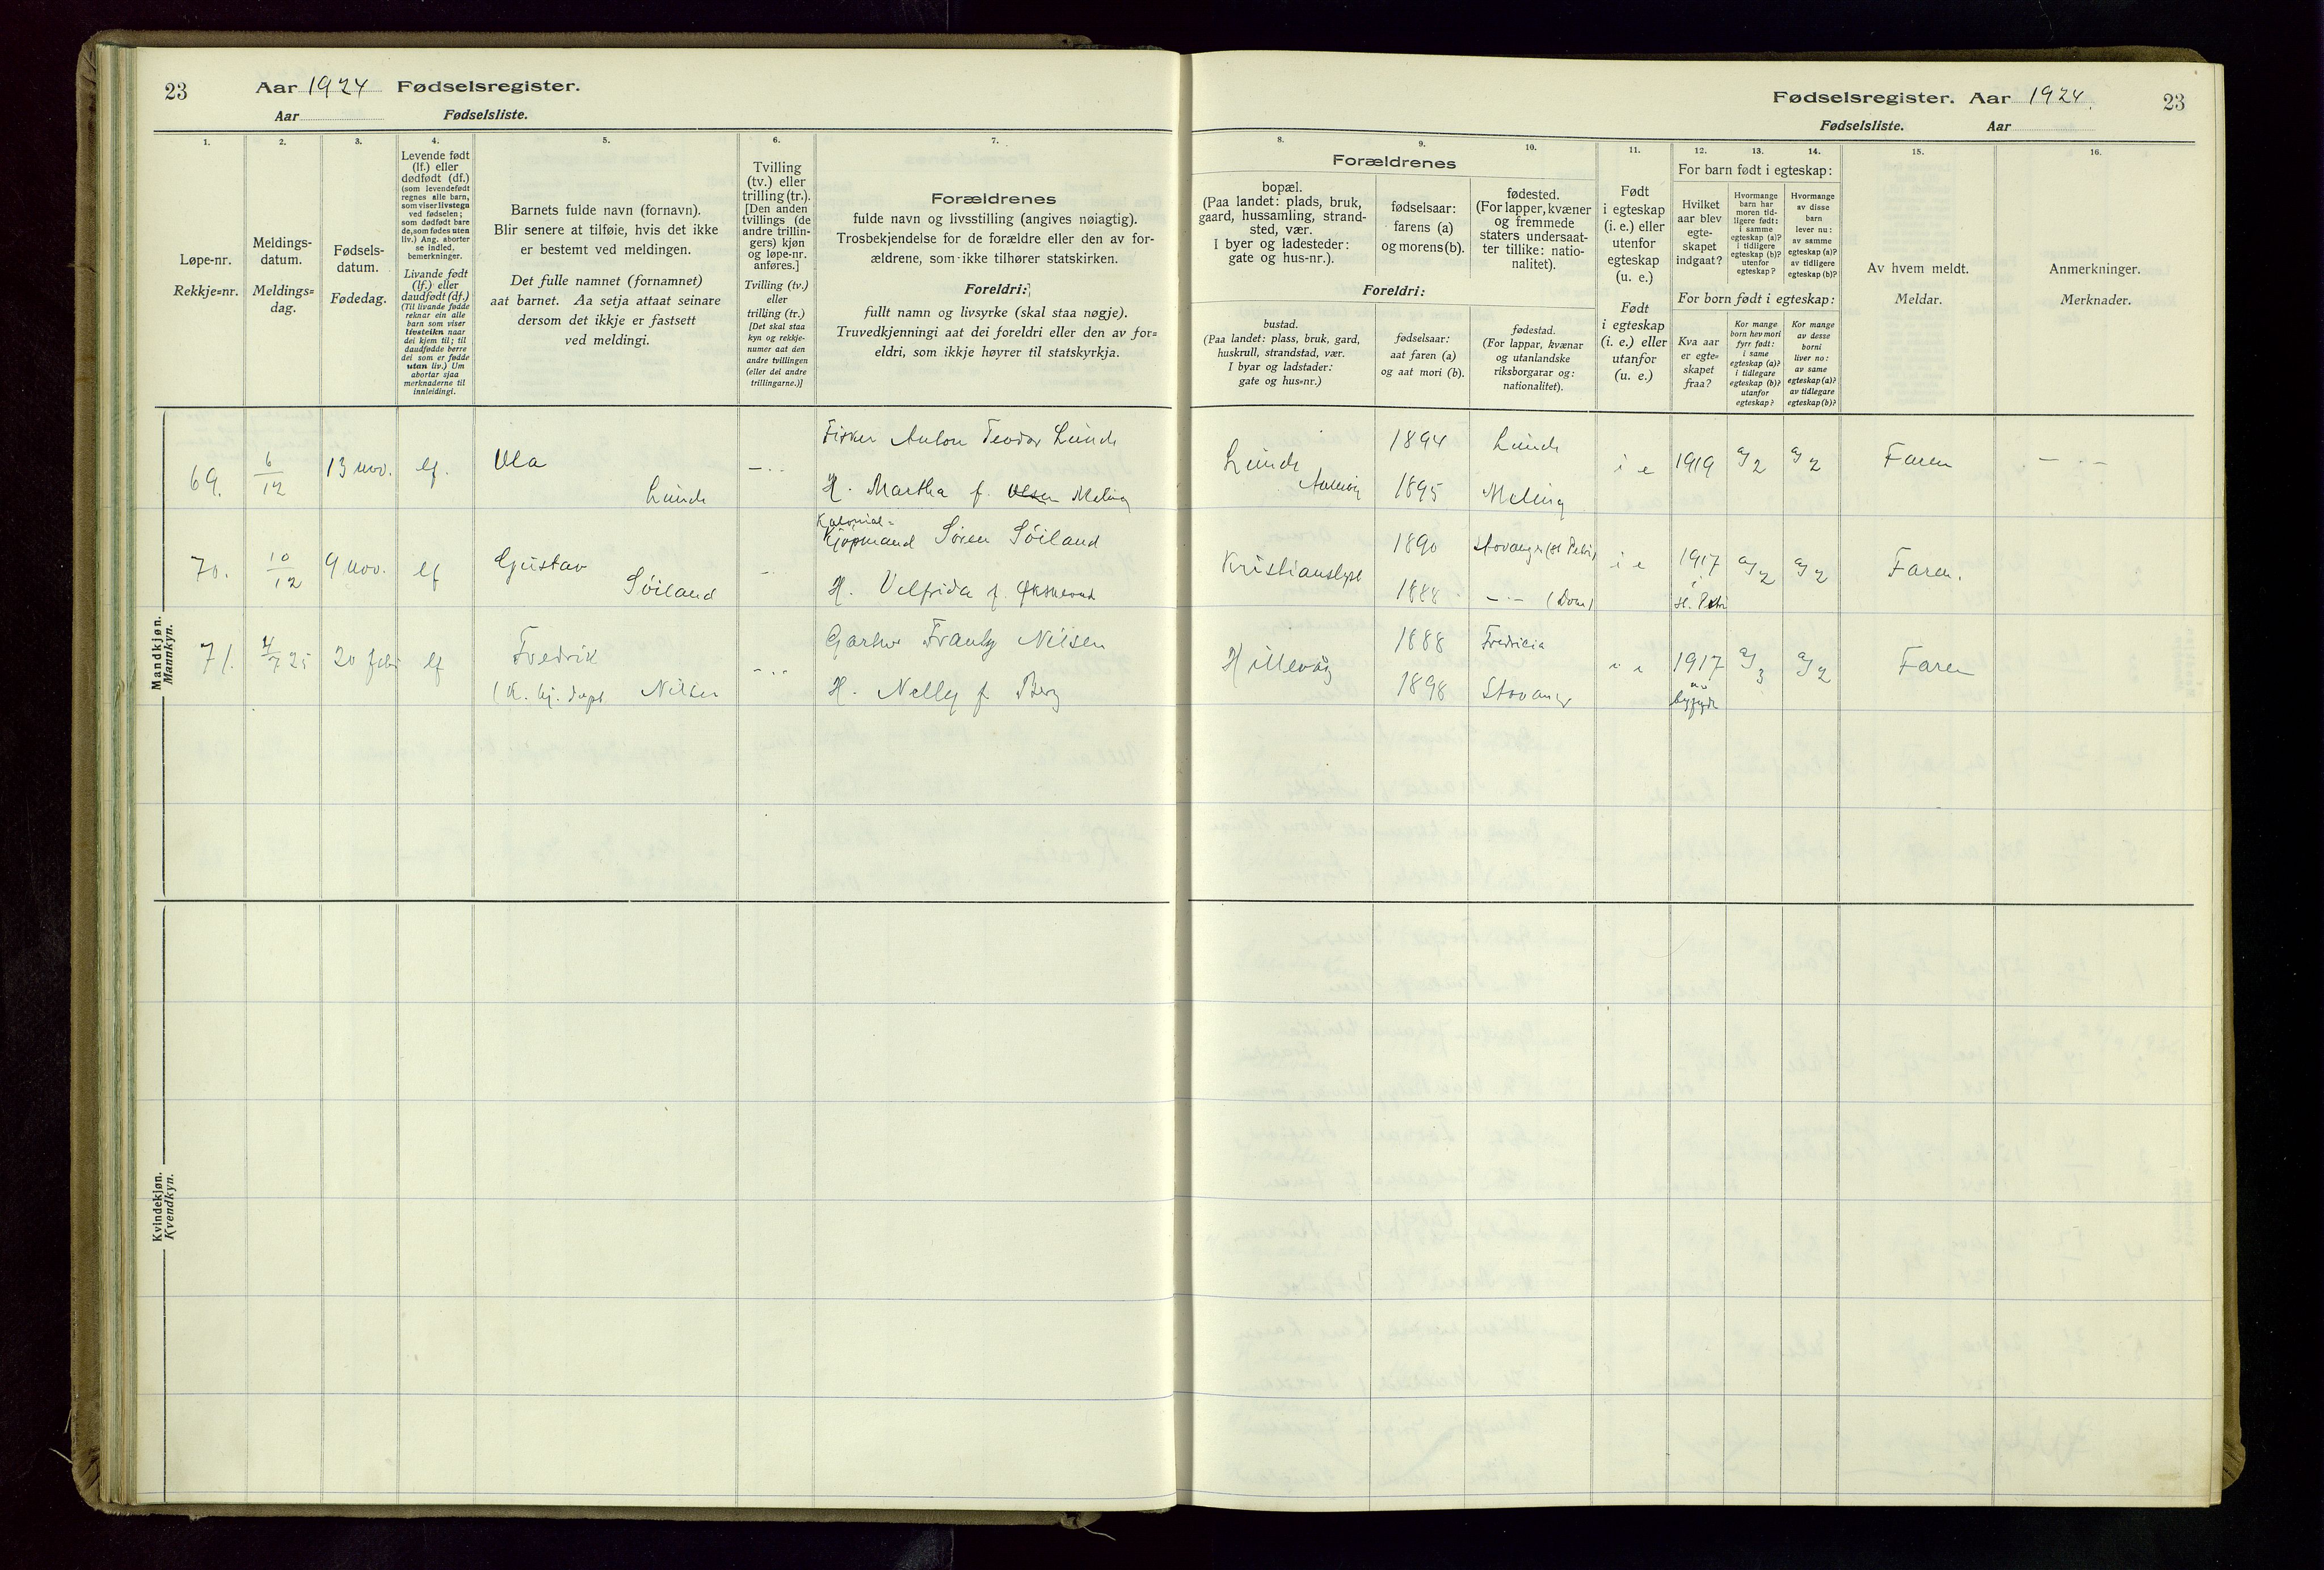 23
Aar 1924 Fødselsregister.
Aar Fødselsliste.
1. 2. 3. 4. 5. 6. 7.
Løpe-nr.
Rekkje=nr.
Meldings-
datum.
Meldings=
dag.
Fødsels-
datum.
Fødedag.
Levende født
(lf.) eller
dødfødt (df.)
(som levendefødt
regnes alle barn,
som viser livstegn
ved fødselen;
som dødfødt bare
de, som fødes uten
liv.) Ang. aborter
se indled.
bemerkninger.
Livande født
(lf.) eller
daudfødt (df.)
(Til livande fødde
reknar ein alle
barn som viser
livsteikn naar
dei kjem til; til
daudfødde berre
dei som er fødde
utan liv.) Um
abortar sjaa
merknaderne til
innleidingi.
Barnets fulde navn (fornavn).
Blir senere at tilføie, hvis det ikke
er bestemt ved meldingen.
Det fulle namnet (fornamnet)
aat barnet. Aa setja attaat seinare
dersom det ikkje er fastsett
ved meldingi.
Tvilling
(tv.) eller
trilling (tr.).
[Den anden
tvillings (de
andre trillin-
gers) kjøn
og løpe-nr.
anføres.]
Tvilling (tv.)
eller
trilling (tr.)
[Det skal staa
kyn og rekkje-
numer aat den
andre tvillingen
(eller dei andre
trillingarne.)]
Forældrenes
fulde navn og livsstilling (angives nøiagtig).
Trosbekjendelse for de forældre eller den av for-
ældrene, som ikke tilhører statskirken.
Foreldri:
fullt namn og livsyrke (skal staa nøgje).
Truvedkjenningi aat dei foreldri eller den av for=
eldri, som ikkje høyrer til statskyrkja.
Mandkjøn.
Mannkyn.
69. 6/12 13 nov. lf. Ola
Lunde
Fisker Anton Teodor Lunde
H. Martha f. Olsen Meling
70. 10/12 9 nov. lf Gustav
Søiland
Kolonial=
kjøpmand Sören Søiland
H. Valfrida f.
71. 4/7 25 20 febr lf Fredrik
Nilsen
Gartner Frantz Nilsen
H. Nelly f. Berg
Kvindekjøn.
Kvendkyn.
Fødselsregister. Aar 1924. 23
Fødselsliste. Aar
8. 9. 10. 11. 12. 13. 14. 15. 16.
Forældrenes
bopæl.
(Paa landet: plads, bruk,
gaard, hussamling, strand-
sted, vær.
I byer og ladesteder:
gate og hus-nr.).
fødselsaar:
farens (a)
og morens (b).
fødested.
(For lapper, kvæner
og fremmede
staters undersaat-
ter tillike: natio-
nalitet).
Foreldri:
bustad.
(Paa landet: plass, bruk, gard,
huskrull, strandstad, vær.
I byar og ladstader:
gate og hus=nr.)
fødselsaar:
aat faren (a)
og aat mori (b).
fødestad.
(For lappar, kvænar
og utanlandske
riksborgarar og:
nationalitet).
Født
i egteskap
(i. e.) eller
utenfor
egteskap
(u. e.)
Født
i egteskap
(i. e.) eller
utanfor
(u. e.)
For barn født i egteskap:
Hvilket
aar blev
egte-
skapet
indgaat?
Hvormange
barn har
moren tid-
ligere født:
i samme
egteskap (a)?
i tidligere
egteskap (b)?
utenfor
egteskap?
Hvormange
av disse
barn
lever nu:
av samme
egteskap (a)?
av tidligere
egteskap (b)?
For born født i egteskap:
Kva aar
er egte=
skapet
fraa?
Kor mange
born hev mori
fyrr født:
i same
egteskap (a)?
i tidlegare
egteskap (b)?
utanfor
egteskap?
Kor mange
av desse
borni
liver no:
av same
egteskap (a)?
av tidlegare
egteskap (b)?
Av hvem meldt.
Meldar.
Anmerkninger.
Merknader.
Lunde 1894 Lunde
1895 Meling
i e 1919 a/2 a/2 Faren
Kristianslyst 1890 Stavanger (St Petri)
1888 (Dom)
i e 1917 i St. Petri a/2 a/2 Faren.
Hillevåg 1888 Fredricia
1898 Stavanger
i e 1917 a/3 a/2 Faren